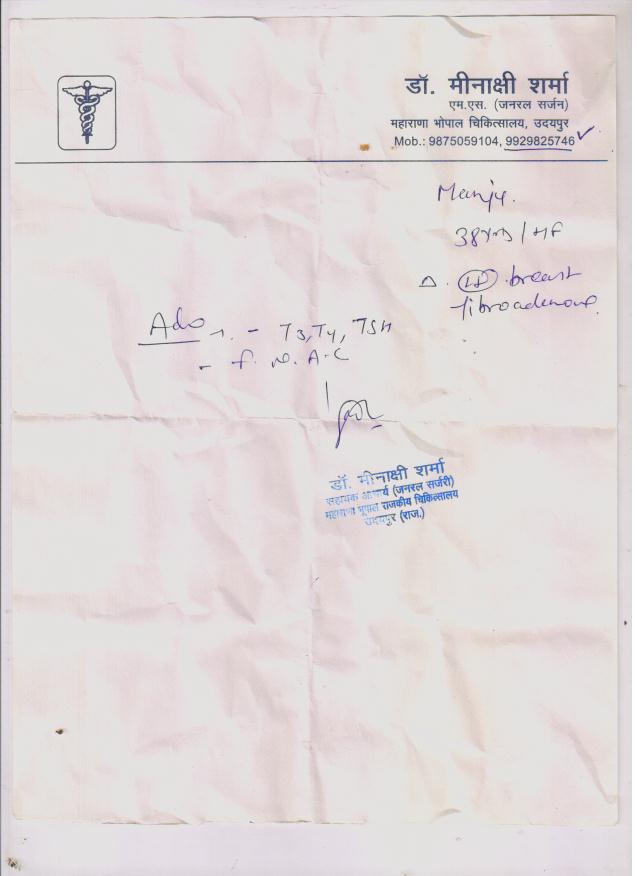 डॉ. मीनाक्षी शर्मा
एम.एस. (जनरल सर्जन)
महाराणा भोपाल चिकित्सालय, उदयपुर
Mob.: 9875059104, 9929825746
Manju.
38yrs /
Δ. breast
fibroadenoma
Adv - T3, T4, TSH
- F. N. A. C
डॉ. मीनाक्षी शर्मा
सहायक आचार्य (जनरल सर्जरी)
महाराणा भूपाल राजकीय चिकित्सालय
उदयपुर (राज.)